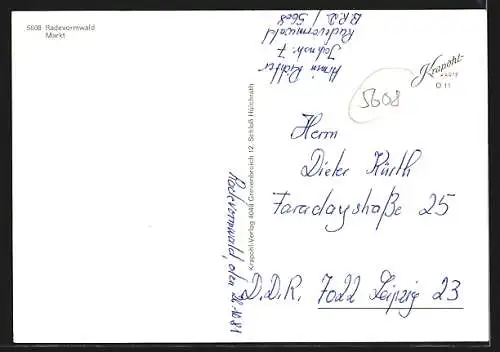 5608 Radevormwald
Markt
Armin Richter
Jahnstr. 7
Radevormwald
B.R.D. / 5608
Krapohl-
KARTE
O 11
5608
Krapohl-Verlag 4048 Grevenbroich 12, Schloß Hülchrath
Radevormwald, den 2.10.81
Herrn
Dieter Kürth
Faradaystraße 25
D.D.R. 7022 Leipzig 23